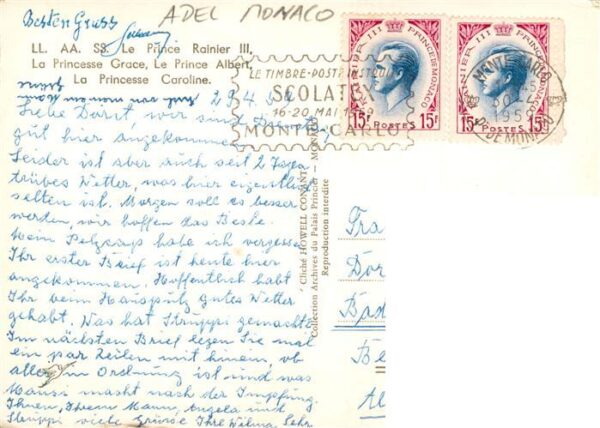 Besten Gruss
ADEL MONACO
LL. AA. SS. Le Prince Rainier III,
La Princesse Grace, Le Prince Albert,
La Princesse Caroline.
RAINIER III PRINCE DE MONACO
15F POSTES 15F
RAINIER III PRINCE DE MONACO
15F POSTES 15F
LE TIMBRE-POSTE INSTRUIT
SCOLATEX
16-20 MAI 19
MONTE-CARLO
MONTE-CARLO
30-4
1959
PTE DE MONACO
29.4.59
Liebe Dorit, wir sind
gut hier angekommen.
Leider ist aber auch seit 2 Tagen
trübes Wetter, was hier eigentlich
selten ist. Morgen soll es besser
werden, wir hoffen das Beste.
Mein Pelzcap habe ich vergessen
Ihr erster Brief ist heute hier
angekommen. Hoffentlich habt
Ihr beim Hausputz gutes Wetter
gehabt. Was hat Struppi gemacht?
Im nächsten Brief legen Sie mal
ein par Zeilen mit hinein, ob
alles in Ordnung ist und was
Mausi macht nach der Impfung
Ihnen, Ihrem Mann, Angela und
Struppi viele Grüsse Ihre Wilma Sehr
Cliché HOWELL CONANT
Collection Archives du Palais Princier - MONACO
Reproduction interdite
Fra
Dor
Bad
Be
Al